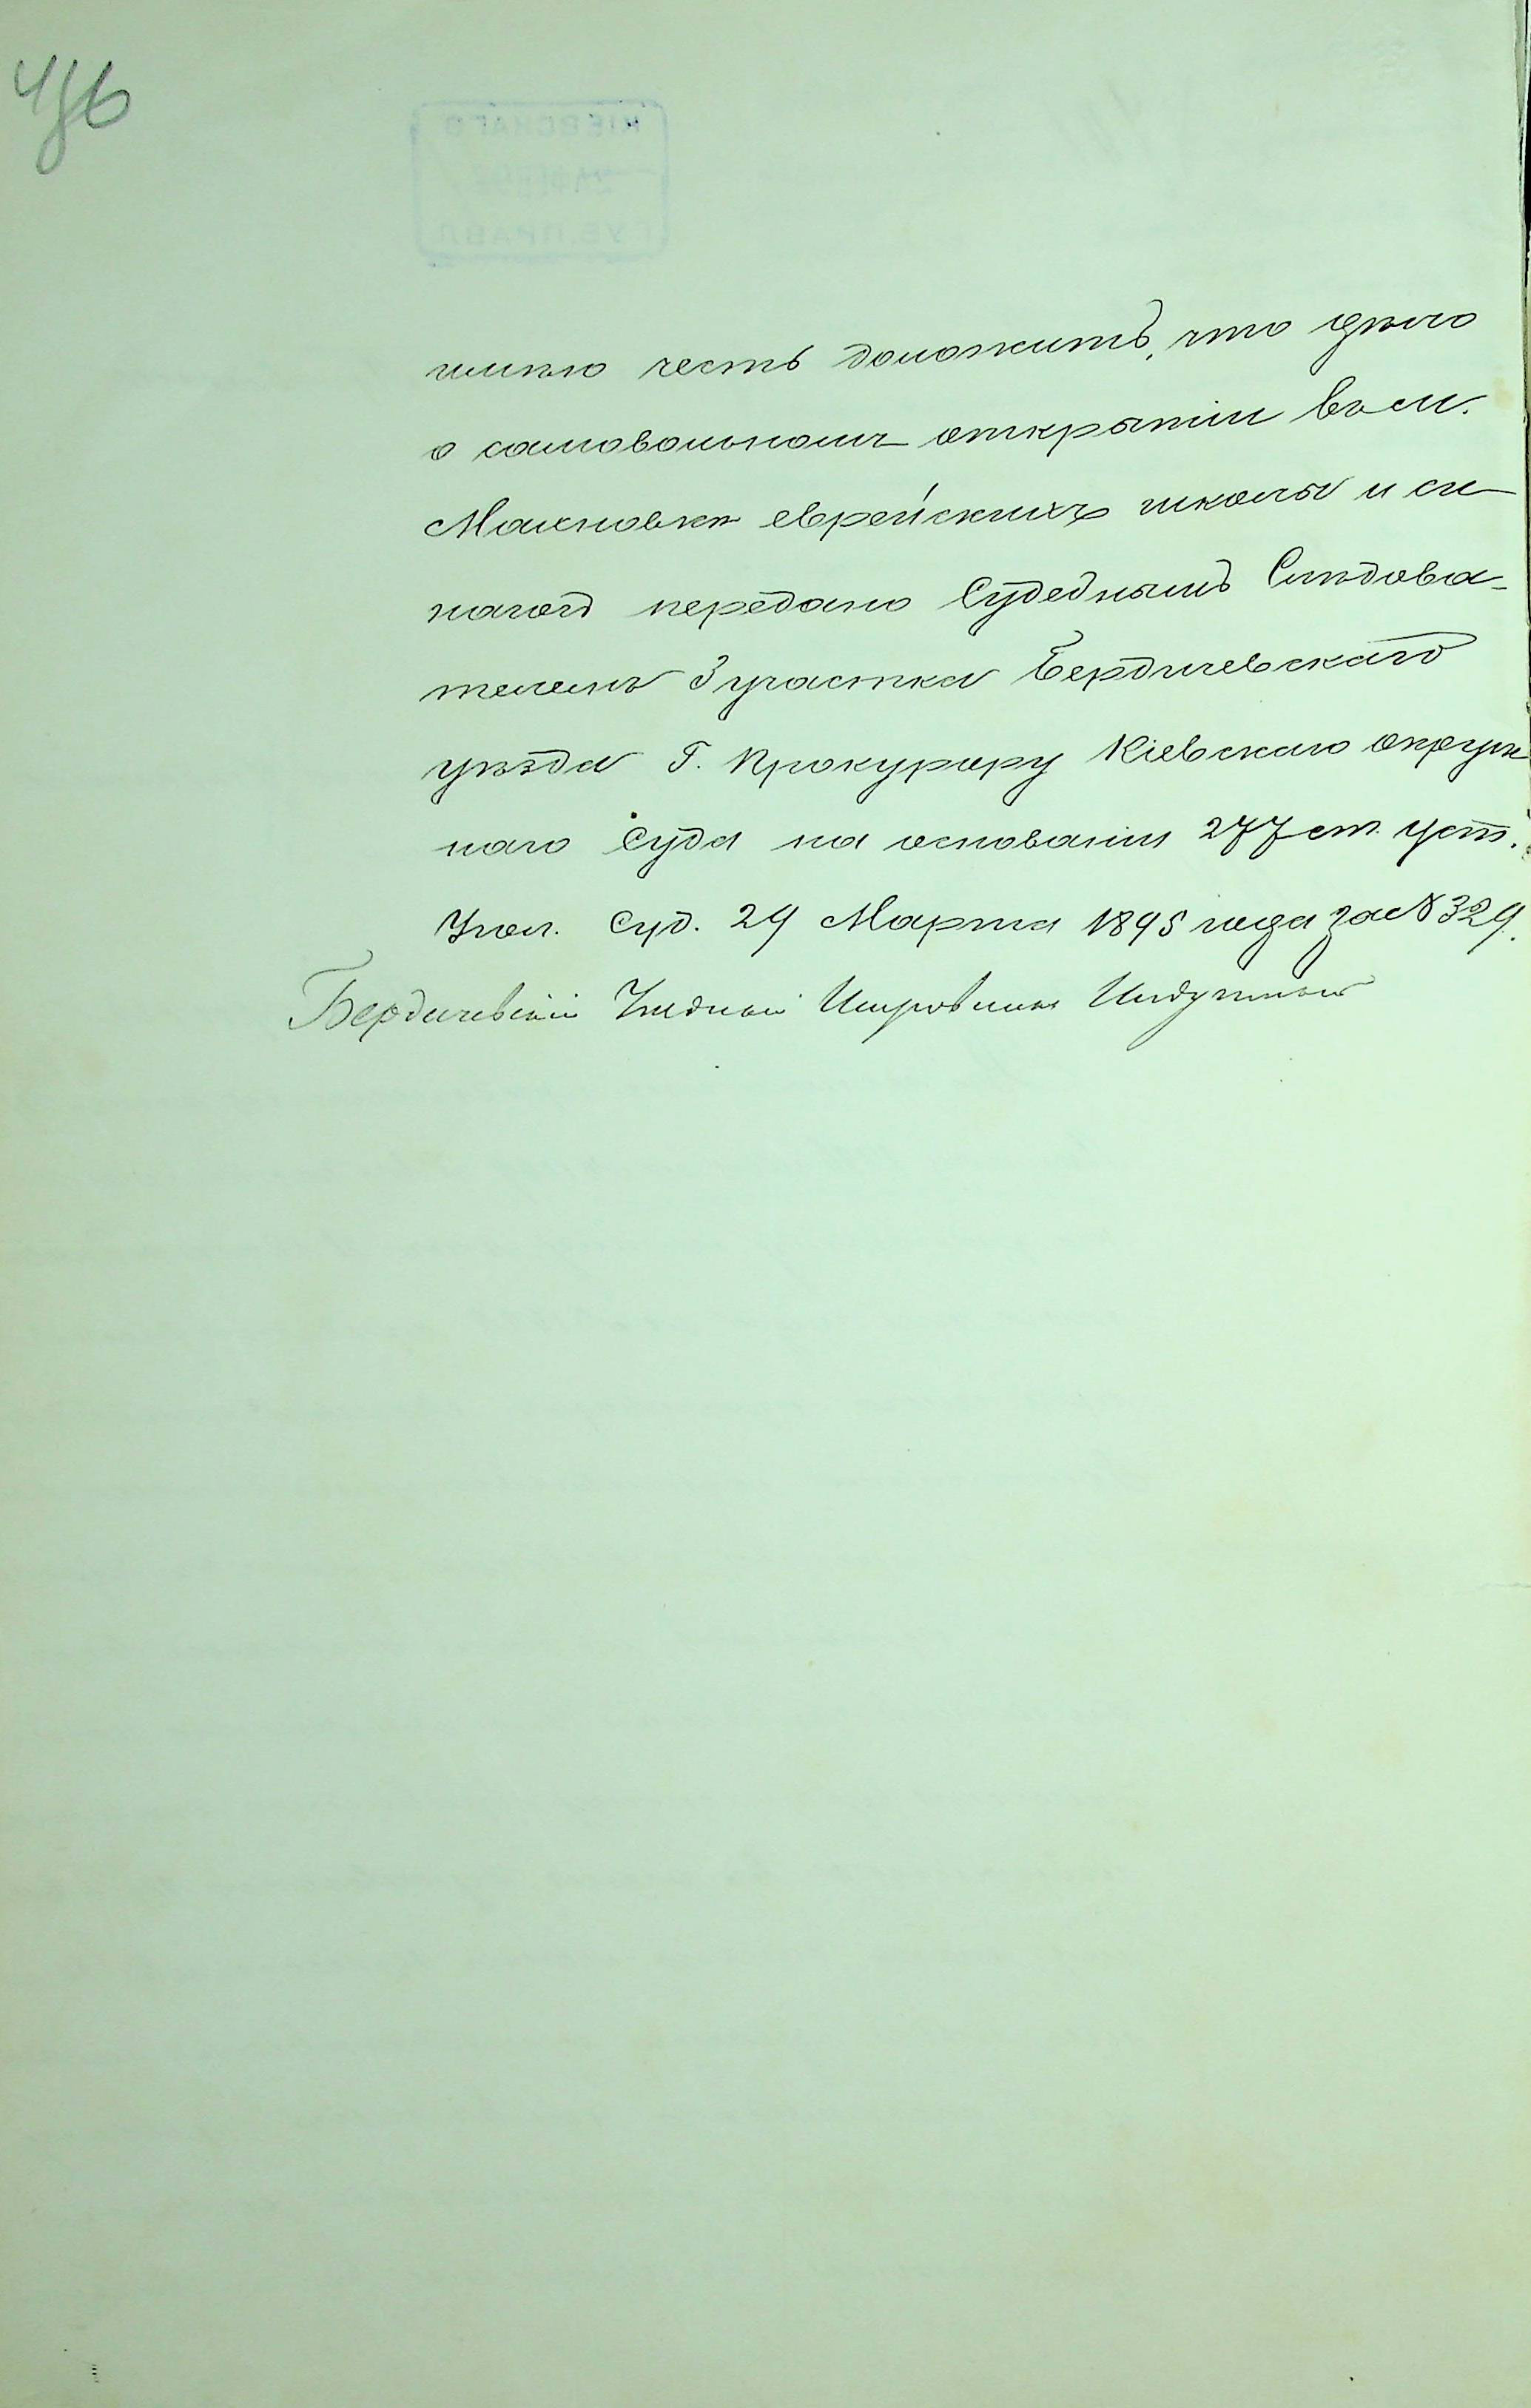 имѣю честь доложить, что дѣло
о самовольномъ открытіи въ м.
Махновкѣ еврейскихъ школы и си-
нагогъ передано Судебнымъ Слѣдова-
телемъ 3 участка Бердичевскаго
уѣзда Г. Прокурору Кіевскаго окруж
наго Суда на основаніи 277 ст. Уст.
Угол. Суд. 29 Марта 1895 года за № 329.
Бердичевскій Уѣздный Исправникъ
КІЕВСКАГО
ГУБ. ПРАВЛ